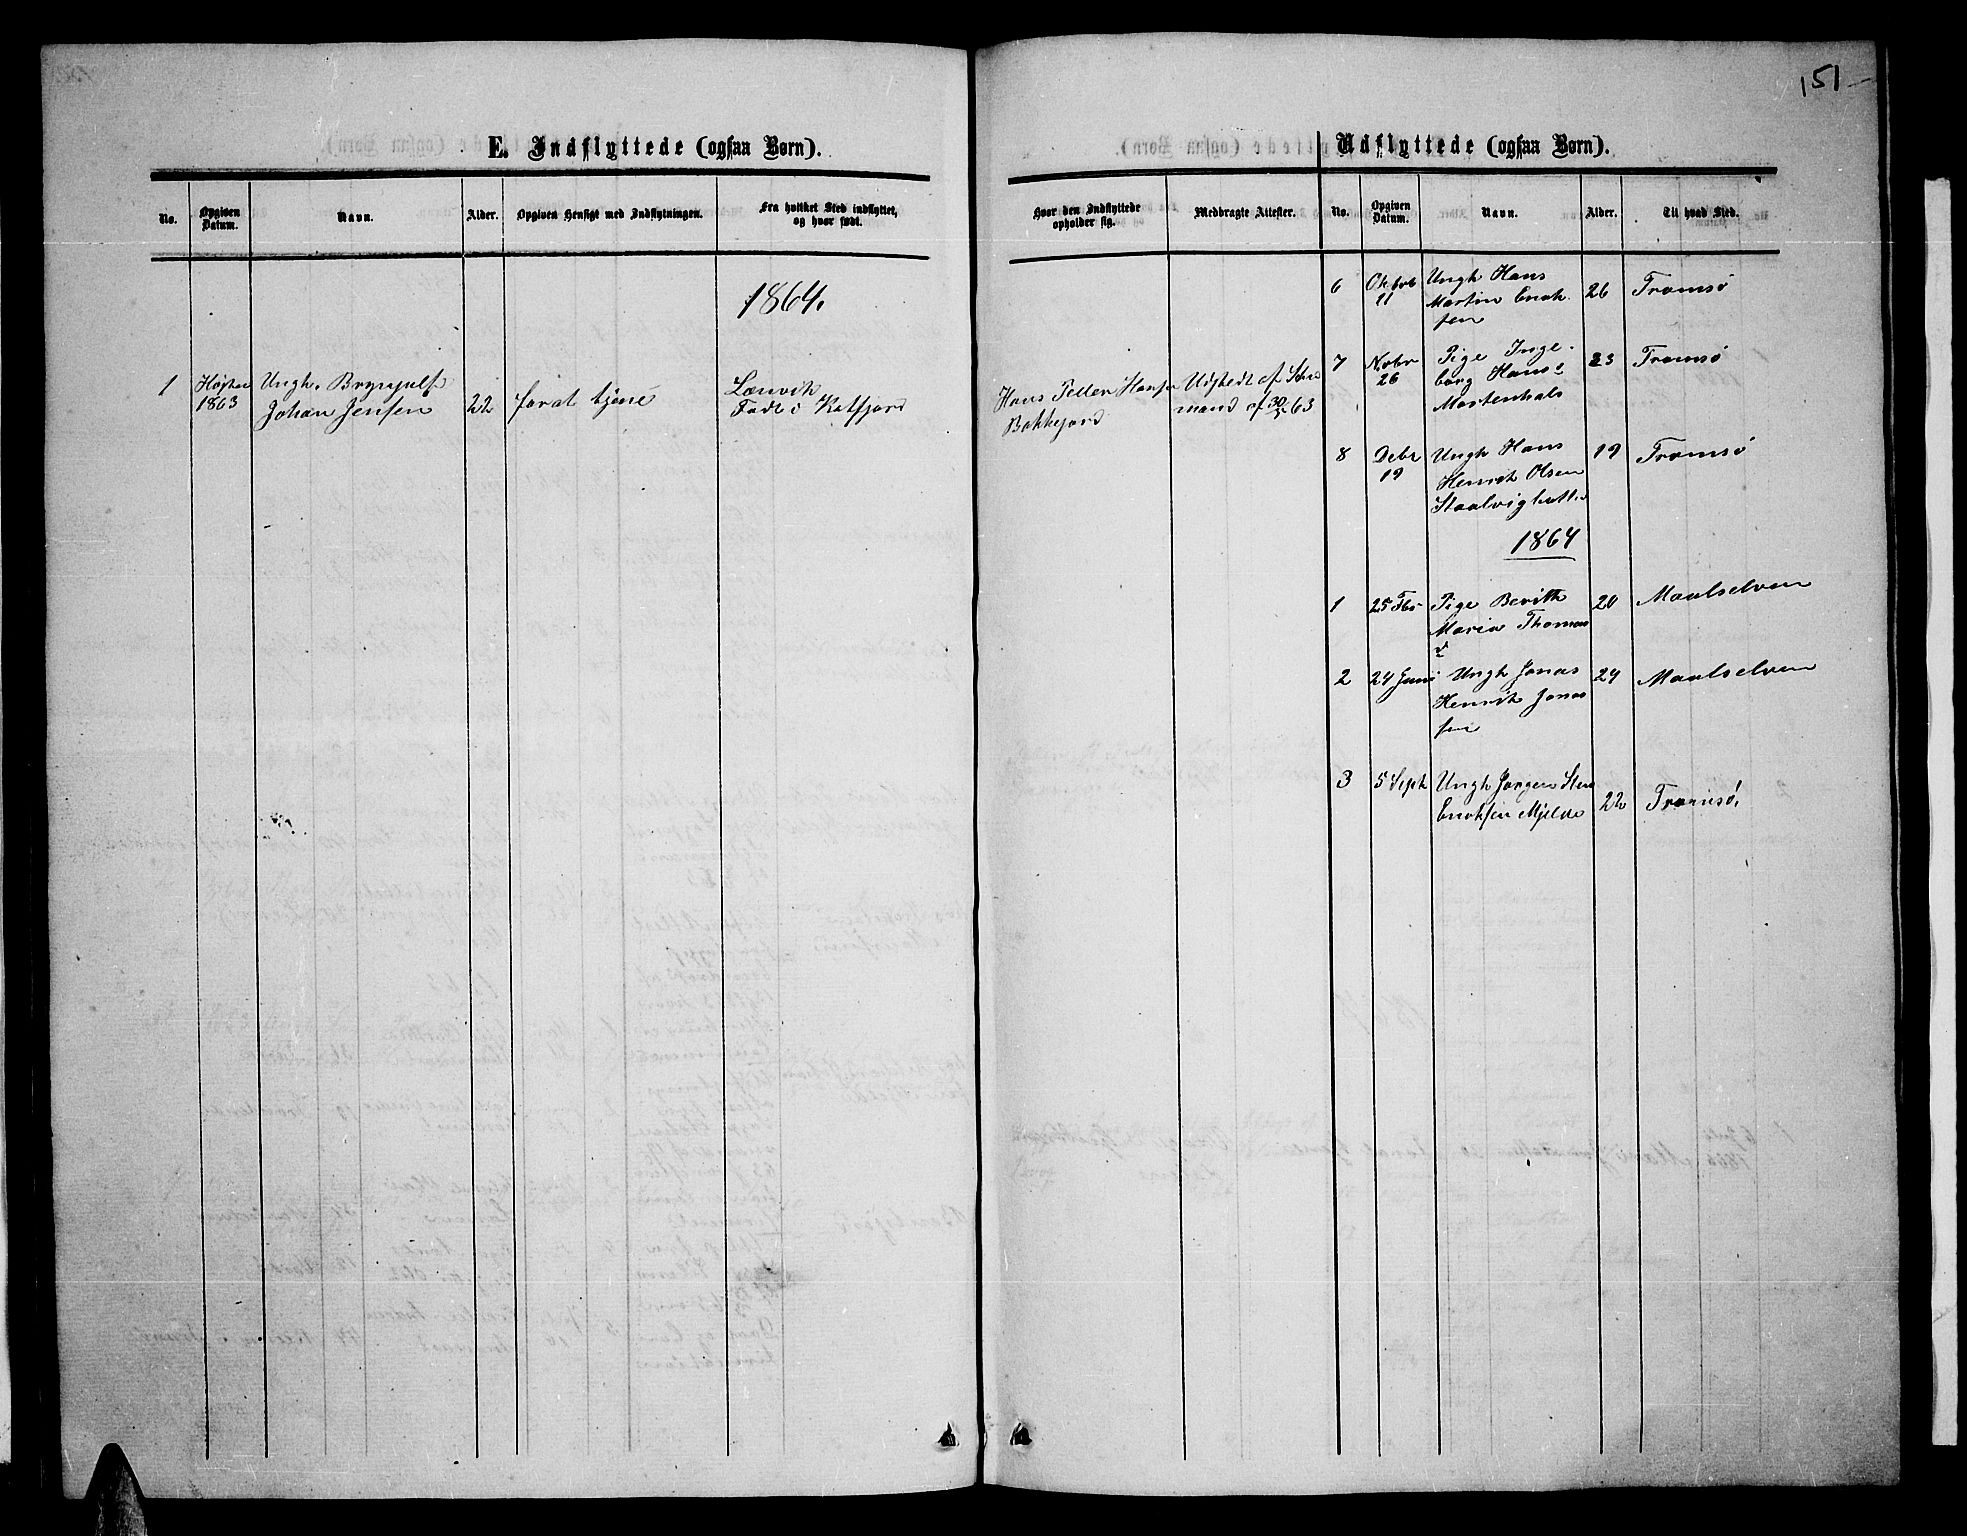 151
E. Indflyttede (ogsaa Børn).
No.
Opgiven Datum.
Navn.
Alder.
Opgiven Hensigt med Indflytningen.
Fra hvilket Sted indflyttet, og hvor født.
Hvor den Indflyttede opholder sig.
Medbragte Attester.
1864.
1
1863
Ungk. Brynjulf
Johan Jensen
22
for at tjene
Lenvik
Født i Katfjord
Hans Peller Hansen
Bakkejord
Udstedt af
mand af 63
Udflyttede (ogsaa Børn).
No.
Opgiven Datum.
Navn.
Alder.
Til hvad Sted.
6
Oktob
11
Ungk Hans
Martin Enok
sen
26
Tromsø
7
Novbr
26
Pige Inge
borg Hansd
Mortenhals
23
Tromsø
8
Debr
19
Ungk Hans
Henrik Olsen
19
Tromsø
1864
1
25 Fbr
Pige Berith
Maria Thomas
d
20
Maalselven
2
24 Juni
Ungk Jonas
Henrik Jonas
sen
24
Maalselven
3
5 Sept
Ungk Jørgen
Enoksen Mjelde
22
Tromsø,